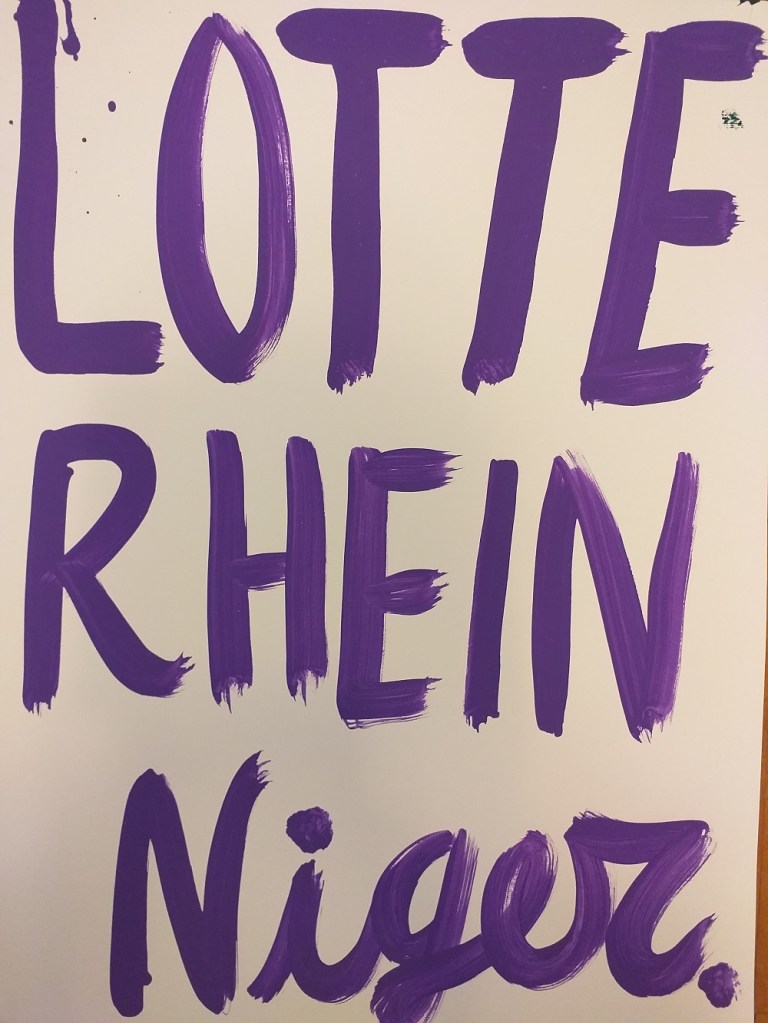 LOTTE
RHEIN
Niger.